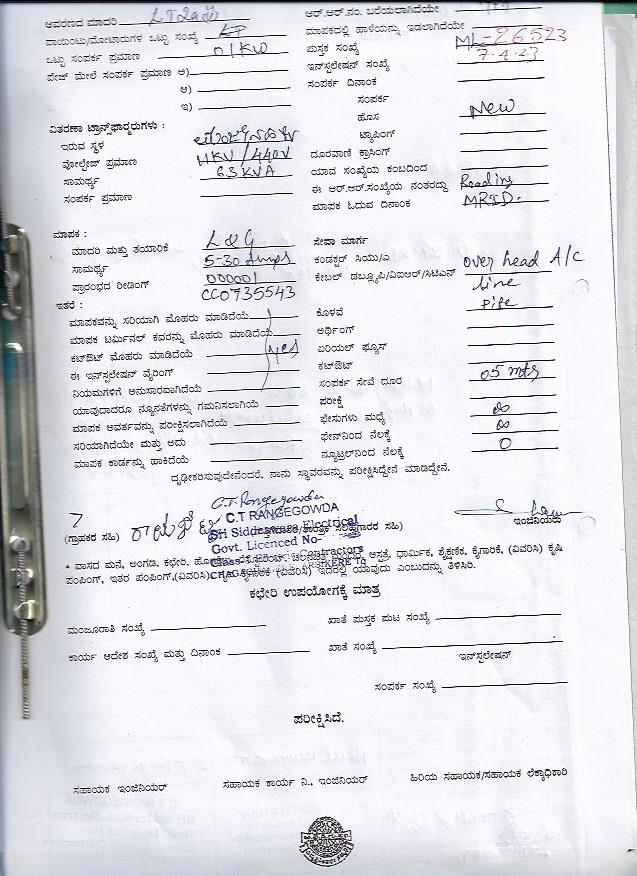 ಆವರಣದ ಮಾದರಿ LT2a
ವಾಯಿಂಟು/ಮೋಟಾರುಗಳ ಒಟ್ಟು ಸಂಖ್ಯೆ
ಒಟ್ಟು ಸಂಪರ್ಕ ಪ್ರಮಾಣ 01KW
ಪೇಜ್ ಮೇಲೆ ಸಂಪರ್ಕ ಪ್ರಮಾಣ ಅ)
ಆ)
ಇ)
ವಿತರಣಾ ಟ್ರಾನ್ಸ್‌ಫಾರ್‍ಮರುಗಳು :
ಇರುವ ಸ್ಥಳ
ವೋಲ್ಟೇಜ್ ಪ್ರಮಾಣ 11KV/440V
ಸಾಮರ್ಥ್ಯ 63KVA
ಸಂಪರ್ಕ ಪ್ರಮಾಣ
ಮಾಪಕ :
ಮಾದರಿ ಮತ್ತು ತಯಾರಿಕೆ L&G
ಸಾಮರ್ಥ್ಯ 5-30 Amps
ಪ್ರಾರಂಭದ ರೀಡಿಂಗ್ 000001
CC0735543
ಇತರೆ :
ಮಾಪಕವನ್ನು ಸರಿಯಾಗಿ ಮೊಹರು ಮಾಡಿದೆಯೆ
ಮಾಪಕ ಟರ್ಮಿನಲ್ ಕವರನ್ನು ಮೊಹರು ಮಾಡಿದೆಯೆ
ಕಟ್‌ಔಟ್ ಮೊಹರು ಮಾಡಿದೆಯೆ yes
ಈ ಇನ್‌ಸ್ಪಲೇಷನ್ ವೈರಿಂಗ್
ನಿಯಮಗಳಿಗೆ ಅನುಸಾರವಾಗಿದೆಯೆ
ಯಾವುದಾದರೂ ನ್ಯೂನತೆಗಳನ್ನು ಗಮನಿಸಲಾಗಿಯೆ
ಮಾಪಕ ಅವರ್ತವನ್ನು ಪರೀಕ್ಷಿಸಲಾಗಿದೆಯೆ
ಸರಿಯಾಗಿದೆಯೇ ಮತ್ತು ಅದು
ಮಾಪಕ ಕಾರ್ಡನ್ನು ಹಾಕಿದೆಯೆ
ಆರ್.ಆರ್.ನಂ. ಬರೆಯಲಾಗಿದೆಯೇ
ಮಾಪಕದಲ್ಲಿ ಹಾಳೆಯನ್ನು ಇಡಲಾಗಿದೆಯೇ
ಪುಸ್ತಕ ಸಂಖ್ಯೆ ML-26523
ಇನ್‌ಸ್ಪಲೇಷನ್ ಸಂಖ್ಯೆ 7.4.23
ಸಂಪರ್ಕ ದಿನಾಂಕ
ಸಂಪರ್ಕ
ಹೊಸ New
ಟ್ಯಾಪಿಂಗ್
ದೂರವಾಣಿ ಕ್ರಾಸಿಂಗ್
ಯಾವ ಸಂಖ್ಯೆಯ ಕಂಬದಿಂದ
ಈ ಆರ್.ಆರ್.ಸಂಖ್ಯೆಯ ನಂತರದ್ದು Reading
ಮಾಪಕ ಓದುವ ದಿನಾಂಕ MRID.
ಸೇವಾ ಮಾರ್ಗ
ಕಂಡಕ್ಟರ್ ಸಿಯು/ಎ over head A/C
ಕೇಬಲ್ ಡಬ್ಲ್ಯೂಪಿ/ವಿಐಆರ್/ಸಿಟಿಎಸ್ line
ಕೊಳವೆ Pipe
ಅರ್ಥಿಂಗ್
ಏರಿಯಲ್ ಫ್ಯೂಸ್
ಕಟ್‌ಔಟ್
ಸಂಪರ್ಕ ಸೇವೆ ದೂರ 05 mts
ಪರೀಕ್ಷೆ
ಫೇಸುಗಳು ಮಧ್ಯೆ ∞
ಫೇಸ್‌ನಿಂದ ನೆಲಕ್ಕೆ ∞
ನ್ಯೂಟ್ರಲ್‌ನಿಂದ ನೆಲಕ್ಕೆ 0
ದೃಢೀಕರಿಸುವುದೇನೆಂದರೆ, ನಾನು ಸ್ಥಾವರವನ್ನು ಪರೀಕ್ಷಿಸಿದ್ದೇನೆ ಮಾಡಿದ್ದೇನೆ.
C.T. Rangegowda
C.T RANGEGOWDA
SH Siddeshwara Electrical
(ಗ್ರಾಹಕರ ಸಹಿ)
ಇಂಜಿನಿಯರು
Govt. Licenced No-
* ವಾಸದ ಮನೆ, ಅಂಗಡಿ, ಕಛೇರಿ, ಆಸ್ಪತ್ರೆ, ಧಾರ್ಮಿಕ, ಶೈಕ್ಷಣಿಕ, ಕೈಗಾರಿಕೆ, (ವಿವರಿಸಿ) ಕೃಷಿ
ಪಂಪಿಂಗ್, ಇತರ ಪಂಪಿಂಗ್,(ವಿವರಿಸಿ) (ವಿವರಿಸಿ) ಇದರಲ್ಲಿ ಯಾವುದು ಎಂಬುದನ್ನು ತಿಳಿಸಿರಿ.
ಕಛೇರಿ ಉಪಯೋಗಕ್ಕೆ ಮಾತ್ರ
ಮಂಜೂರಾತಿ ಸಂಖ್ಯೆ
ಖಾತೆ ಪುಸ್ತಕ ಪುಟ ಸಂಖ್ಯೆ
ಕಾರ್ಯ ಆದೇಶ ಸಂಖ್ಯೆ ಮತ್ತು ದಿನಾಂಕ
ಖಾತೆ ಸಂಖ್ಯೆ
ಇನ್‌ಸ್ಪಲೇಷನ್
ಸಂಪರ್ಕ ಸಂಖ್ಯೆ
ಪರೀಕ್ಷಿಸಿದೆ.
ಸಹಾಯಕ ಇಂಜಿನಿಯರ್
ಸಹಾಯಕ ಕಾರ್ಯ ನಿ., ಇಂಜಿನಿಯರ್
ಹಿರಿಯ ಸಹಾಯಕ/ಸಹಾಯಕ ಲೆಕ್ಕಾಧಿಕಾರಿ